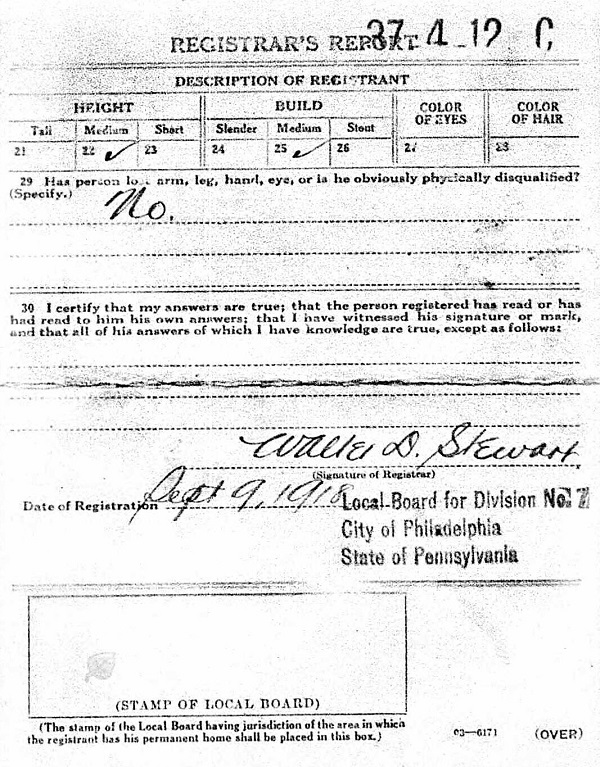 37-4-12 C
REGISTRAR'S REPORT
DESCRIPTION OF REGISTRANT
HEIGHT BUILD COLOR OF EYES COLOR OF HAIR
Tall Medium Short Slender Medium Stout
21 22 ✓ 23 24 25 ✓ 26 27 28
29 Has person lost arm, leg, hand, eye, or is he obviously physically disqualified?
(Specify.) No.
30 I certify that my answers are true; that the person registered has read or has
had read to him his own answers; that I have witnessed his signature or mark,
and that all of his answers of which I have knowledge are true, except as follows:
Walter D. Stewart
(Signature of Registrar)
Date of Registration Sept 9, 1918
Local Board for Division No. 7
City of Philadelphia
State of Pennsylvania
(STAMP OF LOCAL BOARD)
(The stamp of the Local Board having jurisdiction of the area in which
the registrant has his permanent home shall be placed in this box.)
03-6171 (OVER)